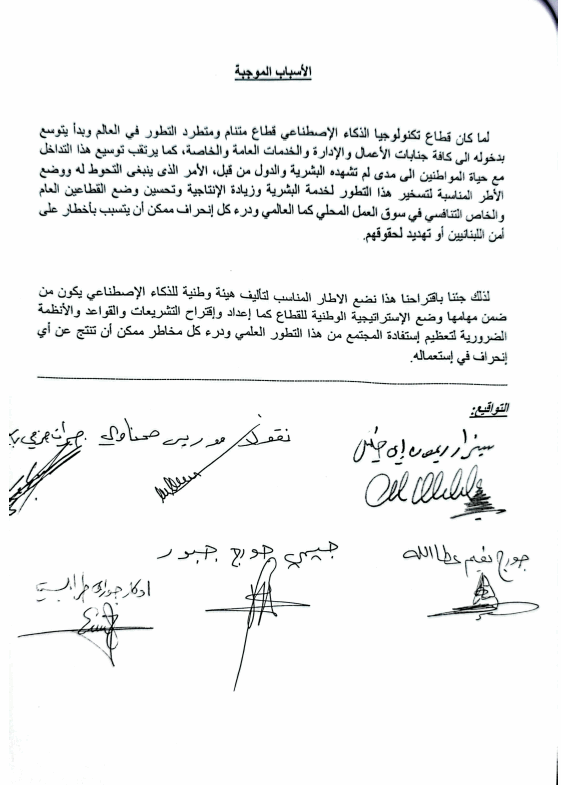 الأسباب الموجبة
لما كان قطاع تكنولوجيا الذكاء الإصطناعي قطاع متنام ومتطرد التطور في العالم وبدأ يتوسع
بدخوله الى كافة جنابات الأعمال والإدارة والخدمات العامة والخاصة، كما يرتقب توسيع هذا التداخل
مع حياة المواطنين الى مدى لم تشهده البشرية والدول من قبل، الأمر الذى ينبغى التحوط له ووضع
الأطر المناسبة لتسخير هذا التطور لخدمة البشرية وزيادة الإنتاجية وتحسين وضع القطاعين العام
والخاص التنافسي في سوق العمل المحلي كما العالمي ودرء كل إنحراف ممكن أن يتسبب بأخطار على
أمن اللبنانيين أو تهديد لحقوقهم.
لذلك جئنا باقتراحنا هذا نضع الاطار المناسب لتأليف هيئة وطنية للذكاء الإصطناعي يكون من
ضمن مهامها وضع الإستراتيجية الوطنية للقطاع كما إعداد وإقتراح التشريعات والقواعد والأنظمة
الضرورية لتعظيم إستفادة المجتمع من هذا التطور العلمي ودرء كل مخاطر ممكن أن تنتج عن أي
إنحراف في إستعماله.
التواقيع:
سيزار ريمون ابي خليل
نقولا موريس صحناوي
جورج نعيم عطاالله
جيمي جورج جبور
ادكار جوزاف طرابلسي